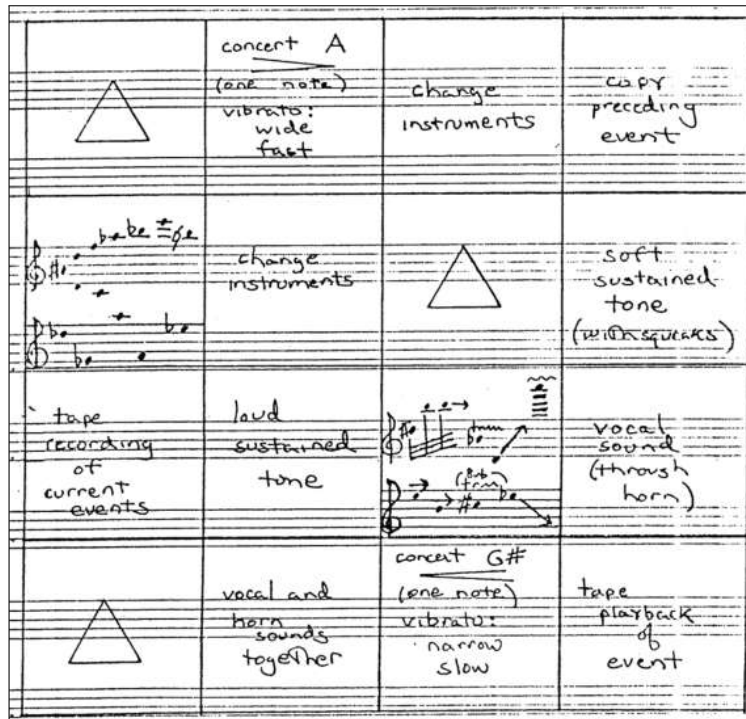 concert A
(one note)
vibrato:
wide
fast
change
instruments
copy
preceding
event
change
instruments
soft
sustained
tone
(with squeaks)
tape
recording
of
current
events
loud
sustained
tone
(8vb)
vocal
sound
(through
horn)
vocal and
horn
sounds
together
concert G#
(one note)
vibrato:
narrow
slow
tape
playback
of
event